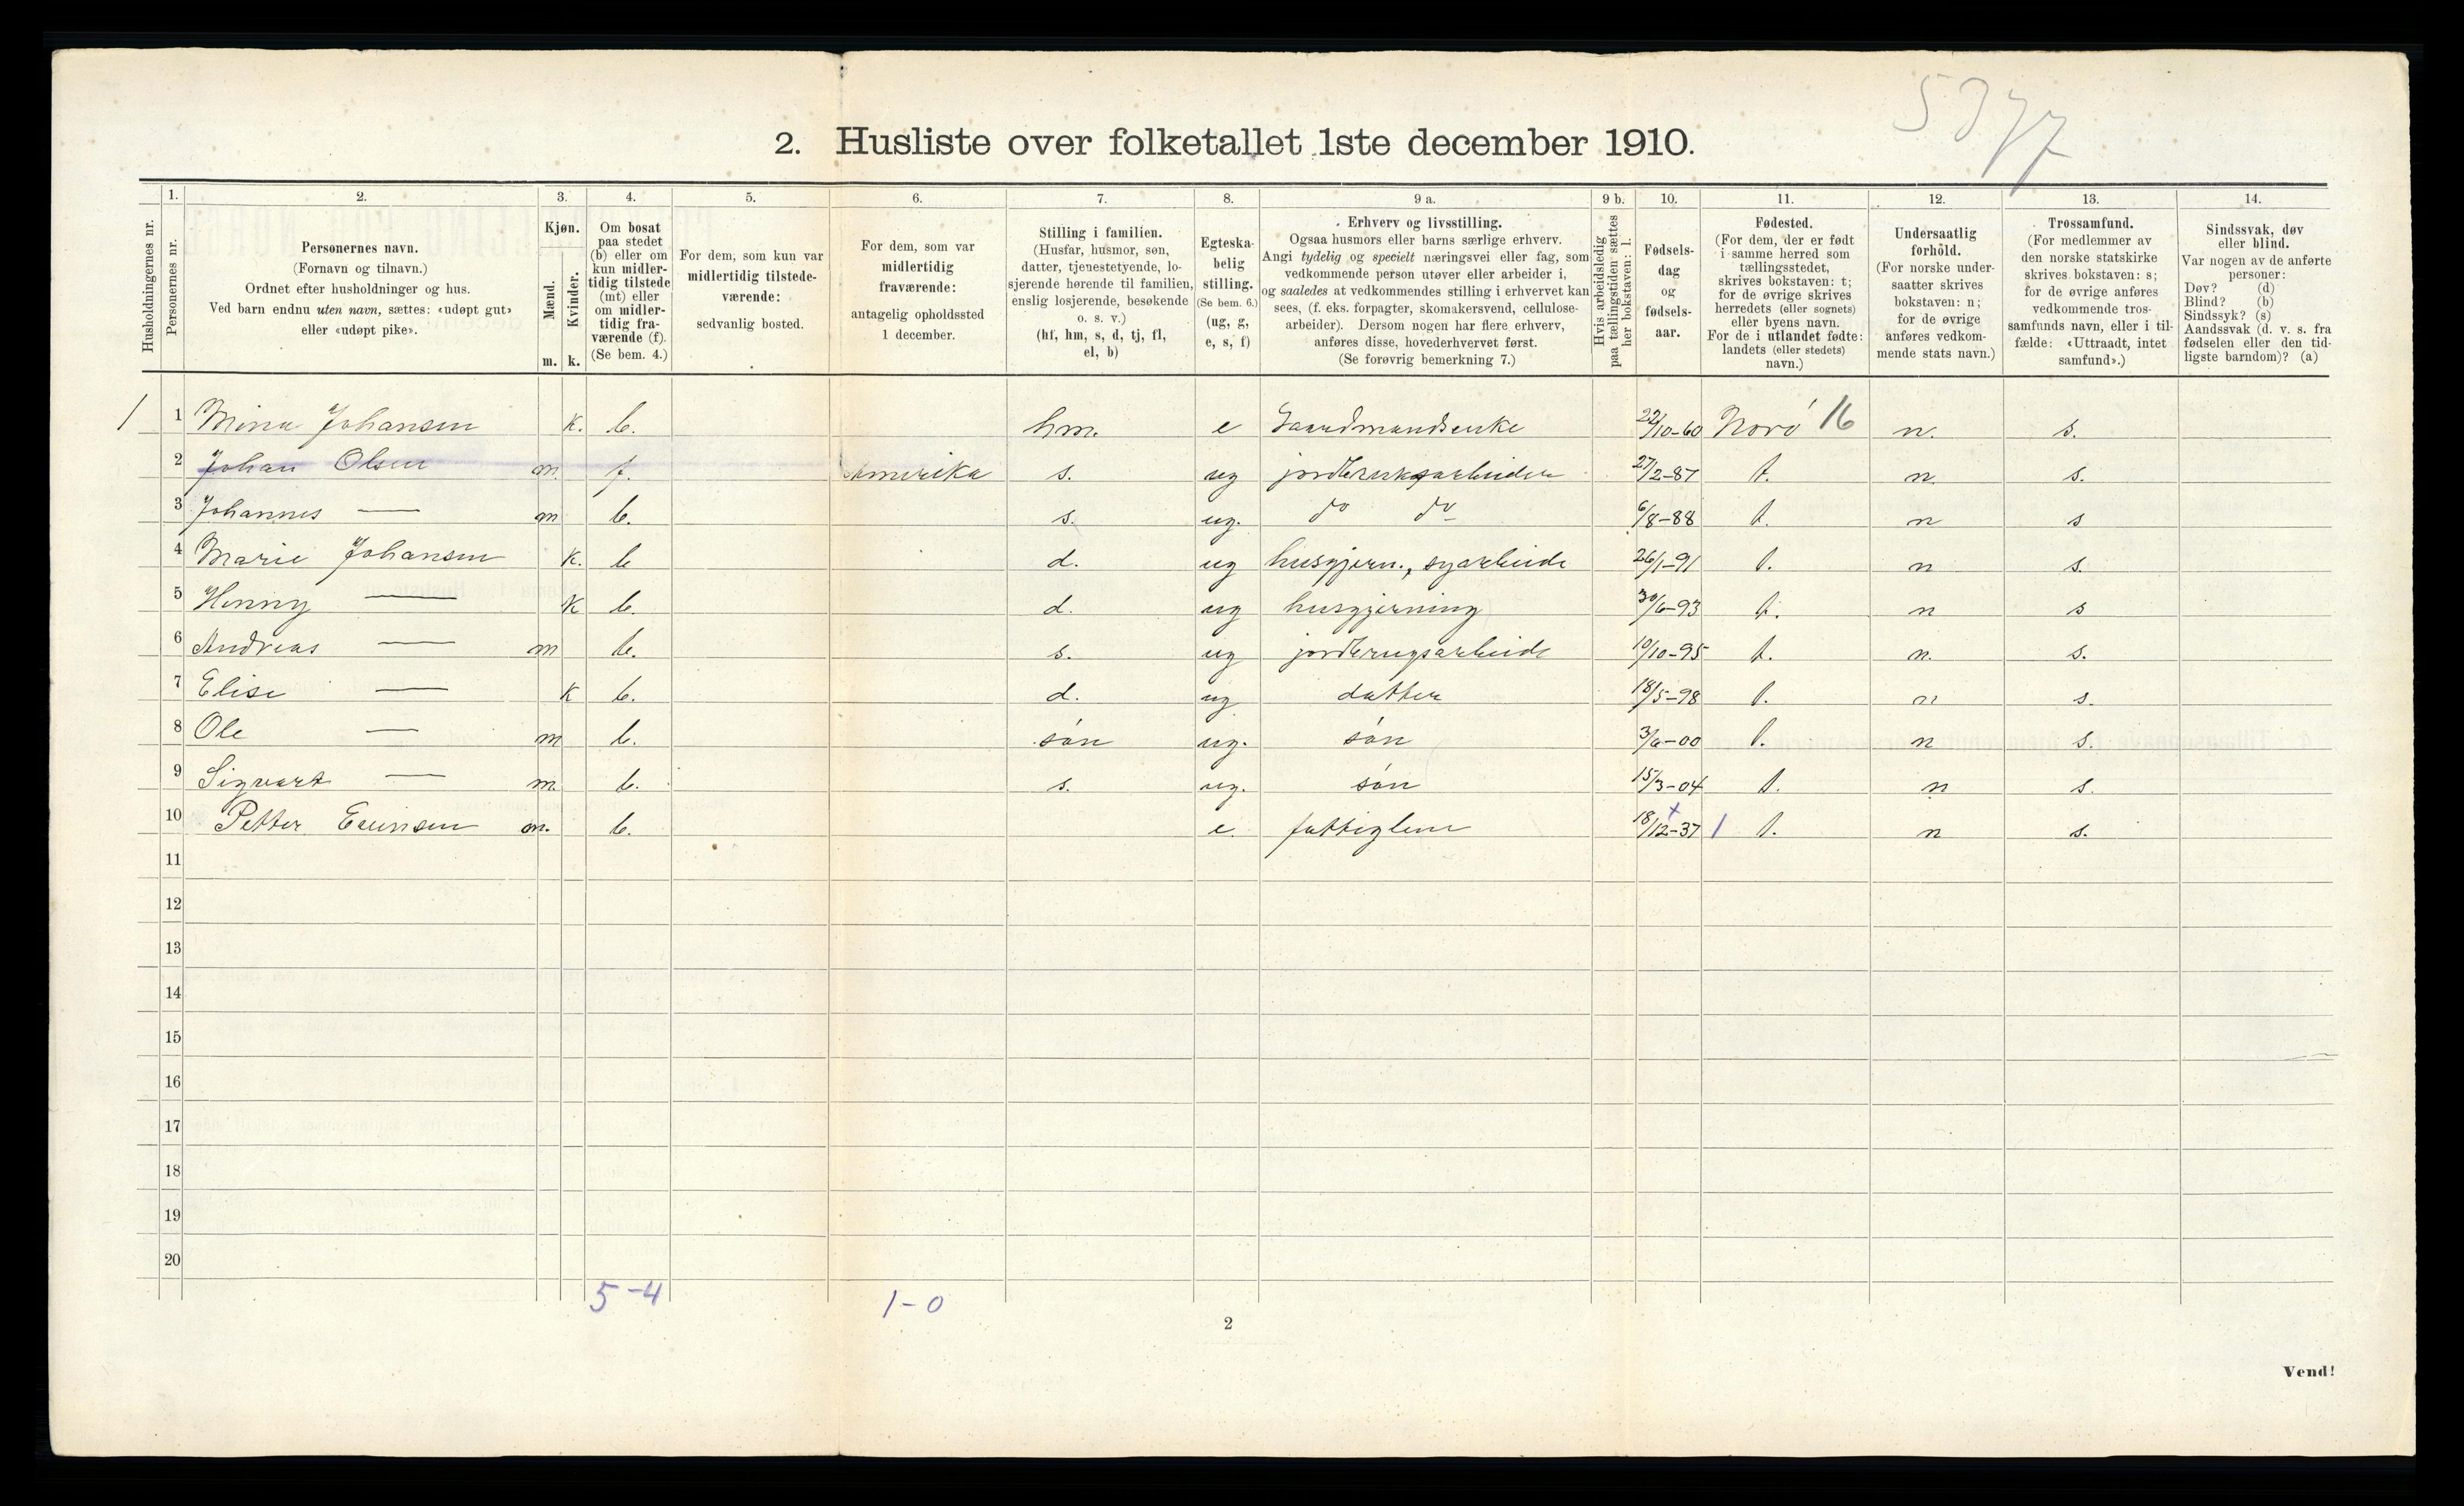 5377
2. Husliste over folketallet 1ste december 1910.
Husholdningernes nr.
1. Personernes nr.
2. Personernes navn. (Fornavn og tilnavn.) Ordnet efter husholdninger og hus. Ved barn endnu uten navn, sættes: «udøpt gut» eller «udøpt pike».
3. Kjøn. Mænd. m. Kvinder. k.
4. Om bosat paa stedet (b) eller om kun midlertidig tilstede (mt) eller om midlertidig fraværende (f). (Se bem. 4.)
5. For dem, som kun var midlertidig tilstedeværende: sedvanlig bosted.
6. For dem, som var midlertidig fraværende: antagelig opholdssted 1 december.
7. Stilling i familien. (Husfar, husmor, søn, datter, tjenestetyende, losjerende hørende til familien, enslig losjerende, besøkende o. s. v.) (hf, hm, s, d, tj, fl, el, b)
8. Egteskabelig stilling. (Se bem. 6.) (ug, g, e, s, f)
9 a. Erhverv og livsstilling. Ogsaa husmors eller barns særlige erhverv. Angi tydelig og specielt næringsvei eller fag, som vedkommende person utøver eller arbeider i, og saaledes at vedkommendes stilling i erhvervet kan sees, (f. eks. forpagter, skomakersvend, cellulosearbeider). Dersom nogen har flere erhverv, anføres disse, hovederhvervet først. (Se forøvrig bemerkning 7.)
9 b. Hvis arbeidsledig paa tællingstiden sættes her bokstaven: l.
10. Fødselsdag og fødselsaar.
11. Fødested. (For dem, der er født i samme herred som tællingsstedet, skrives bokstaven: t; for de øvrige skrives herredets (eller sognets) eller byens navn. For de i utlandet fødte: landets (eller stedets) navn.)
12. Undersaatlig forhold. (For norske undersaatter skrives bokstaven: n; for de øvrige anføres vedkommende stats navn.)
13. Trossamfund. (For medlemmer av den norske statskirke skrives bokstaven: s; for de øvrige anføres vedkommende trossamfunds navn, eller i tilfælde: «Uttraadt, intet samfund».)
14. Sindssvak, døv eller blind. Var nogen av de anførte personer: Døv? (d) Blind? (b) Sindssyk? (s) Aandssvak (d. v. s. fra fødselen eller den tidligste barndom)? (a)
1 1 Mina Johansen k. b. hm. e Gaardmandsenke 22/10-60 Norö 16 n. s.
2 Johan Olsen m. f. Amerika s. ug jordbruksarbeider 27/2-87 t. n. s.
3 Johannes — m b. s. ug. do do 6/8-88 t. n s
4 Marie Johansen k. b d. ug husgjern., syarbeide 26/1-91 t. n s.
5 Henny — k b. d. ug husgjerning 30/6-93 t. n s
6 Andreas — m b. s. ug jordbrugsarbeide 10/10-95 t. n. s.
7 Elise — k b. d. ug datter 18/5-98 t. n s.
8 Ole — m b. sön ug. sön 3/6-00 t. n s.
9 Sigvart — m. b. s. ug. sön 15/3-04 t. n s.
10 Petter Evensen m. b. e. fattiglem 18/12-37 1 t. n s.
11
12
13
14
15
16
17
18
19
20
5-4 1-0
2
Vend!